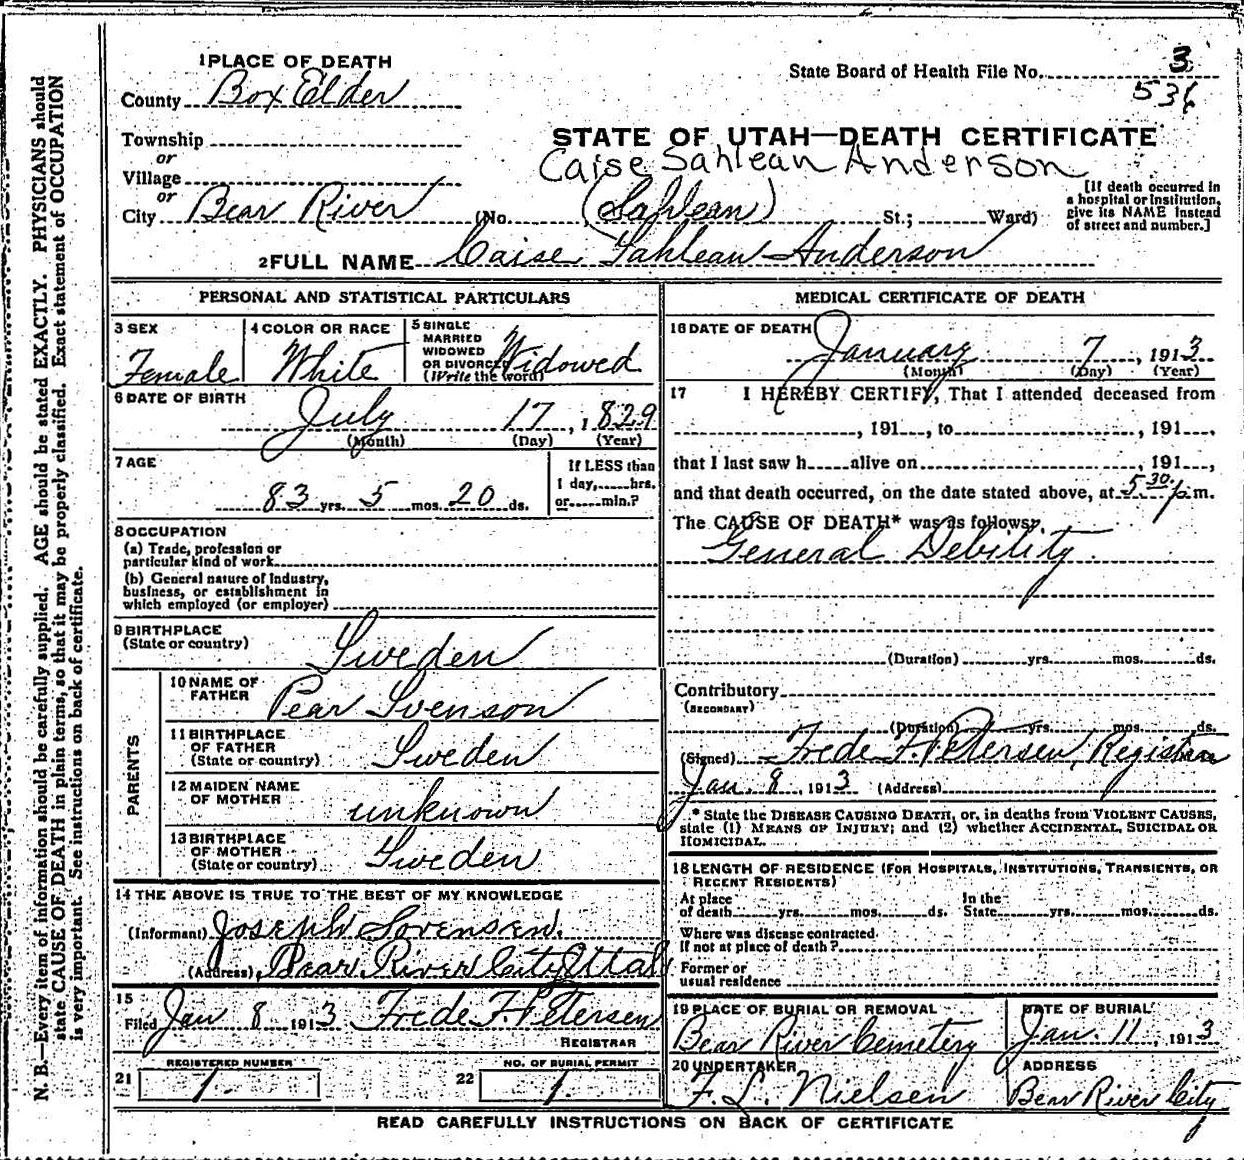 N. B.—Every item of information should be carefully supplied. AGE should be stated EXACTLY. PHYSICIANS should
state CAUSE OF DEATH in plain terms, so that it may be properly classified. Exact statement of OCCUPATION
is very important. See instructions on back of certificate.
1 PLACE OF DEATH
County Box Elder
Township
or
Village
or
City Bear River
State Board of Health File No. 3
536
STATE OF UTAH—DEATH CERTIFICATE
Caise Sahlean Anderson
(No. (Sahlean) St.; Ward)
[If death occurred in
a hospital or institution,
give its NAME instead
of street and number.]
2 FULL NAME Caise Sahlean Anderson
PERSONAL AND STATISTICAL PARTICULARS
3 SEX
Female
4 COLOR OR RACE
White
5 SINGLE
MARRIED
WIDOWED
OR DIVORCED
(Write the word)
Widowed
6 DATE OF BIRTH
July 17, 1829
(Month) (Day) (Year)
7 AGE
83 yrs. 5 mos. 20 ds.
If LESS than
1 day, hrs.
or min.?
8 OCCUPATION
(a) Trade, profession or
particular kind of work
(b) General nature of Industry,
business, or establishment in
which employed (or employer)
9 BIRTHPLACE
(State or country)
Sweden
PARENTS
10 NAME OF
FATHER
Pear Svenson
11 BIRTHPLACE
OF FATHER
(State or country)
Sweden
12 MAIDEN NAME
OF MOTHER
unknown
13 BIRTHPLACE
OF MOTHER
(State or country)
Sweden
14 THE ABOVE IS TRUE TO THE BEST OF MY KNOWLEDGE
(Informant) Joseph Sorensen.
(Address) Bear River City Utah
15
Filed Jan 8 1913 Frede F. Petersen
REGISTRAR
REGISTERED NUMBER
21 1.
NO. OF BURIAL PERMIT
22 1.
MEDICAL CERTIFICATE OF DEATH
16 DATE OF DEATH
January 7, 1913
(Month) (Day) (Year)
17 I HEREBY CERTIFY, That I attended deceased from
, 191 , to , 191 ,
that I last saw h alive on , 191 ,
and that death occurred, on the date stated above, at 5 30 p m.
The CAUSE OF DEATH* was as follows:
General Debility.
(Duration) yrs. mos. ds.
Contributory
(SECONDARY)
(Duration) yrs. mos. ds.
(Signed) Frede F. Petersen, Registrar
Jan. 8, 1913 (Address)
* State the DISEASE CAUSING DEATH, or, in deaths from VIOLENT CAUSES,
state (1) MEANS OF INJURY; and (2) whether ACCIDENTAL, SUICIDAL OR
HOMICIDAL.
18 LENGTH OF RESIDENCE (FOR HOSPITALS, INSTITUTIONS, TRANSIENTS, OR
RECENT RESIDENTS)
At place
of death yrs. mos. ds.
In the
State yrs. mos. ds.
Where was disease contracted
If not at place of death?
Former or
usual residence
19 PLACE OF BURIAL OR REMOVAL
Bear River Cemetery
DATE OF BURIAL
Jan. 11, 1913
20 UNDERTAKER
F. L. Nielsen
ADDRESS
Bear River City
READ CAREFULLY INSTRUCTIONS ON BACK OF CERTIFICATE